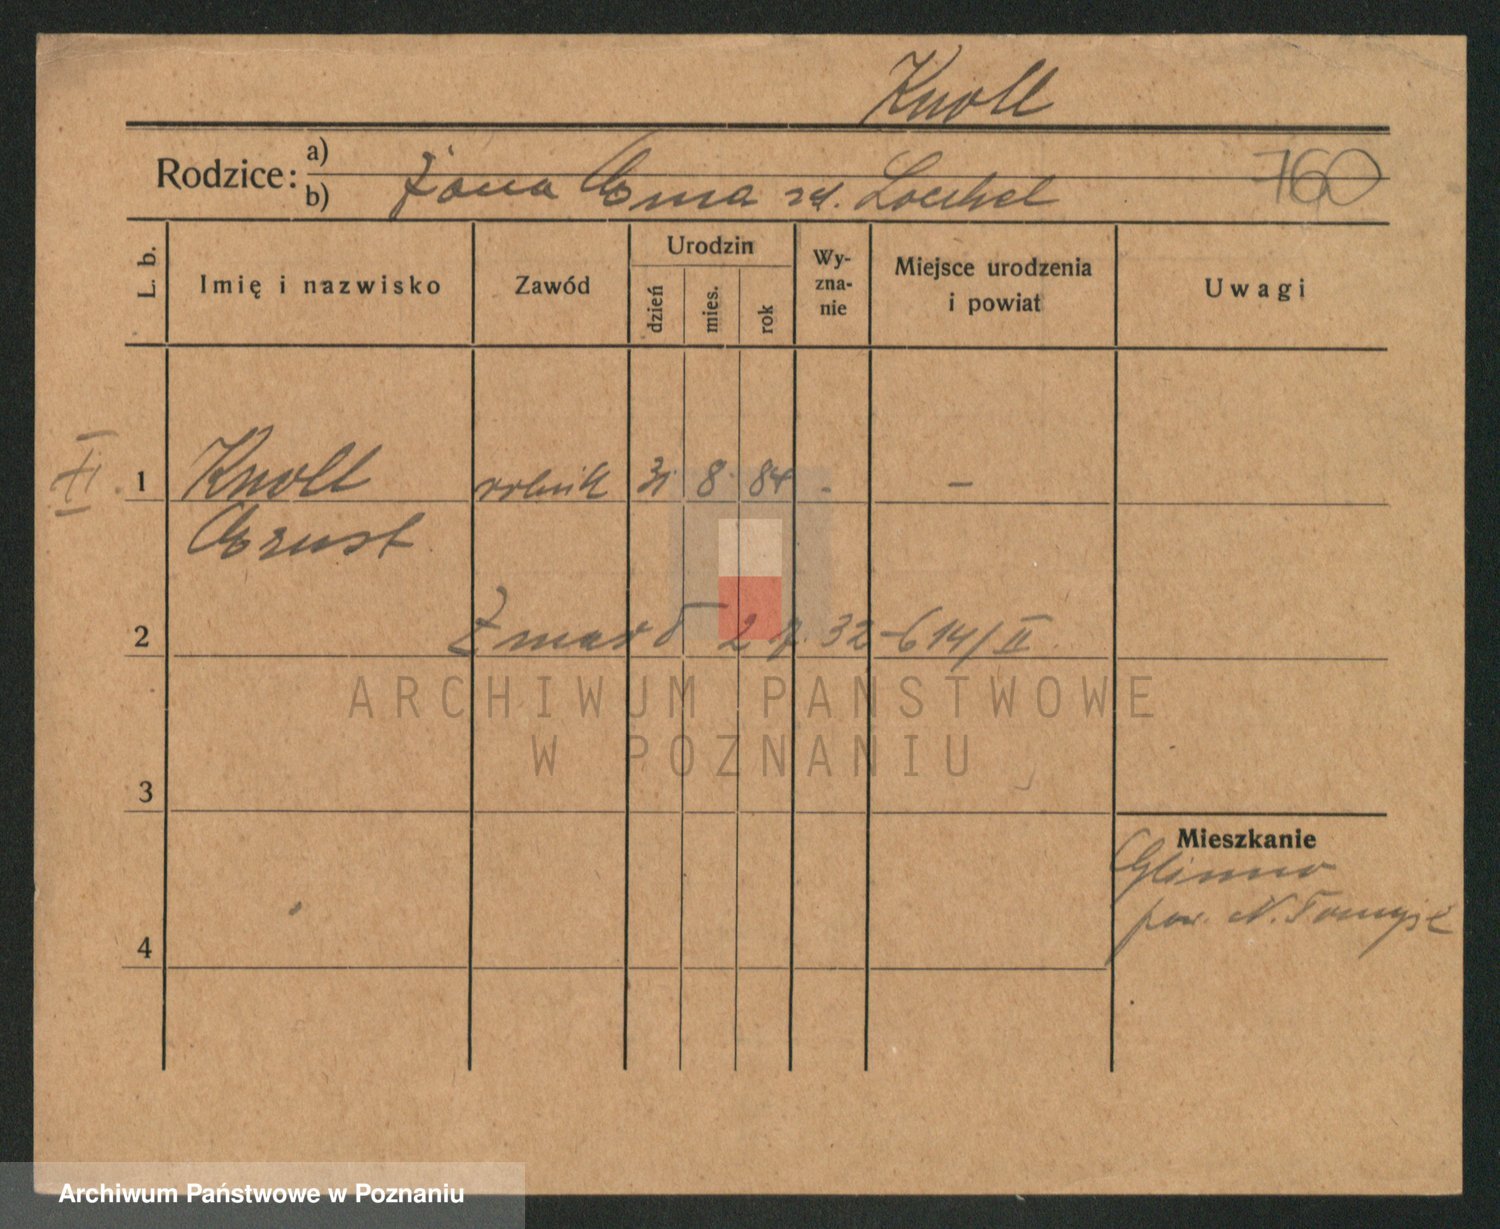 Knoll
Rodzice: a)
b) żona Ema zd. Loechel
760
L. b.
Imię i nazwisko
Zawód
Urodzin
dzień
mies.
rok
Wy-
zna-
nie
Miejsce urodzenia
i powiat
Uwagi
1 Knoll rolnik 31 8. 84 - -
Ernst
2 Zmarł 2 7. 32 - 614/II
ARCHIWUM PAŃSTWOWE
W POZNANIU
3
Mieszkanie
Glinno
pow. N. Tomyśl
4
Archiwum Państwowe w Poznaniu